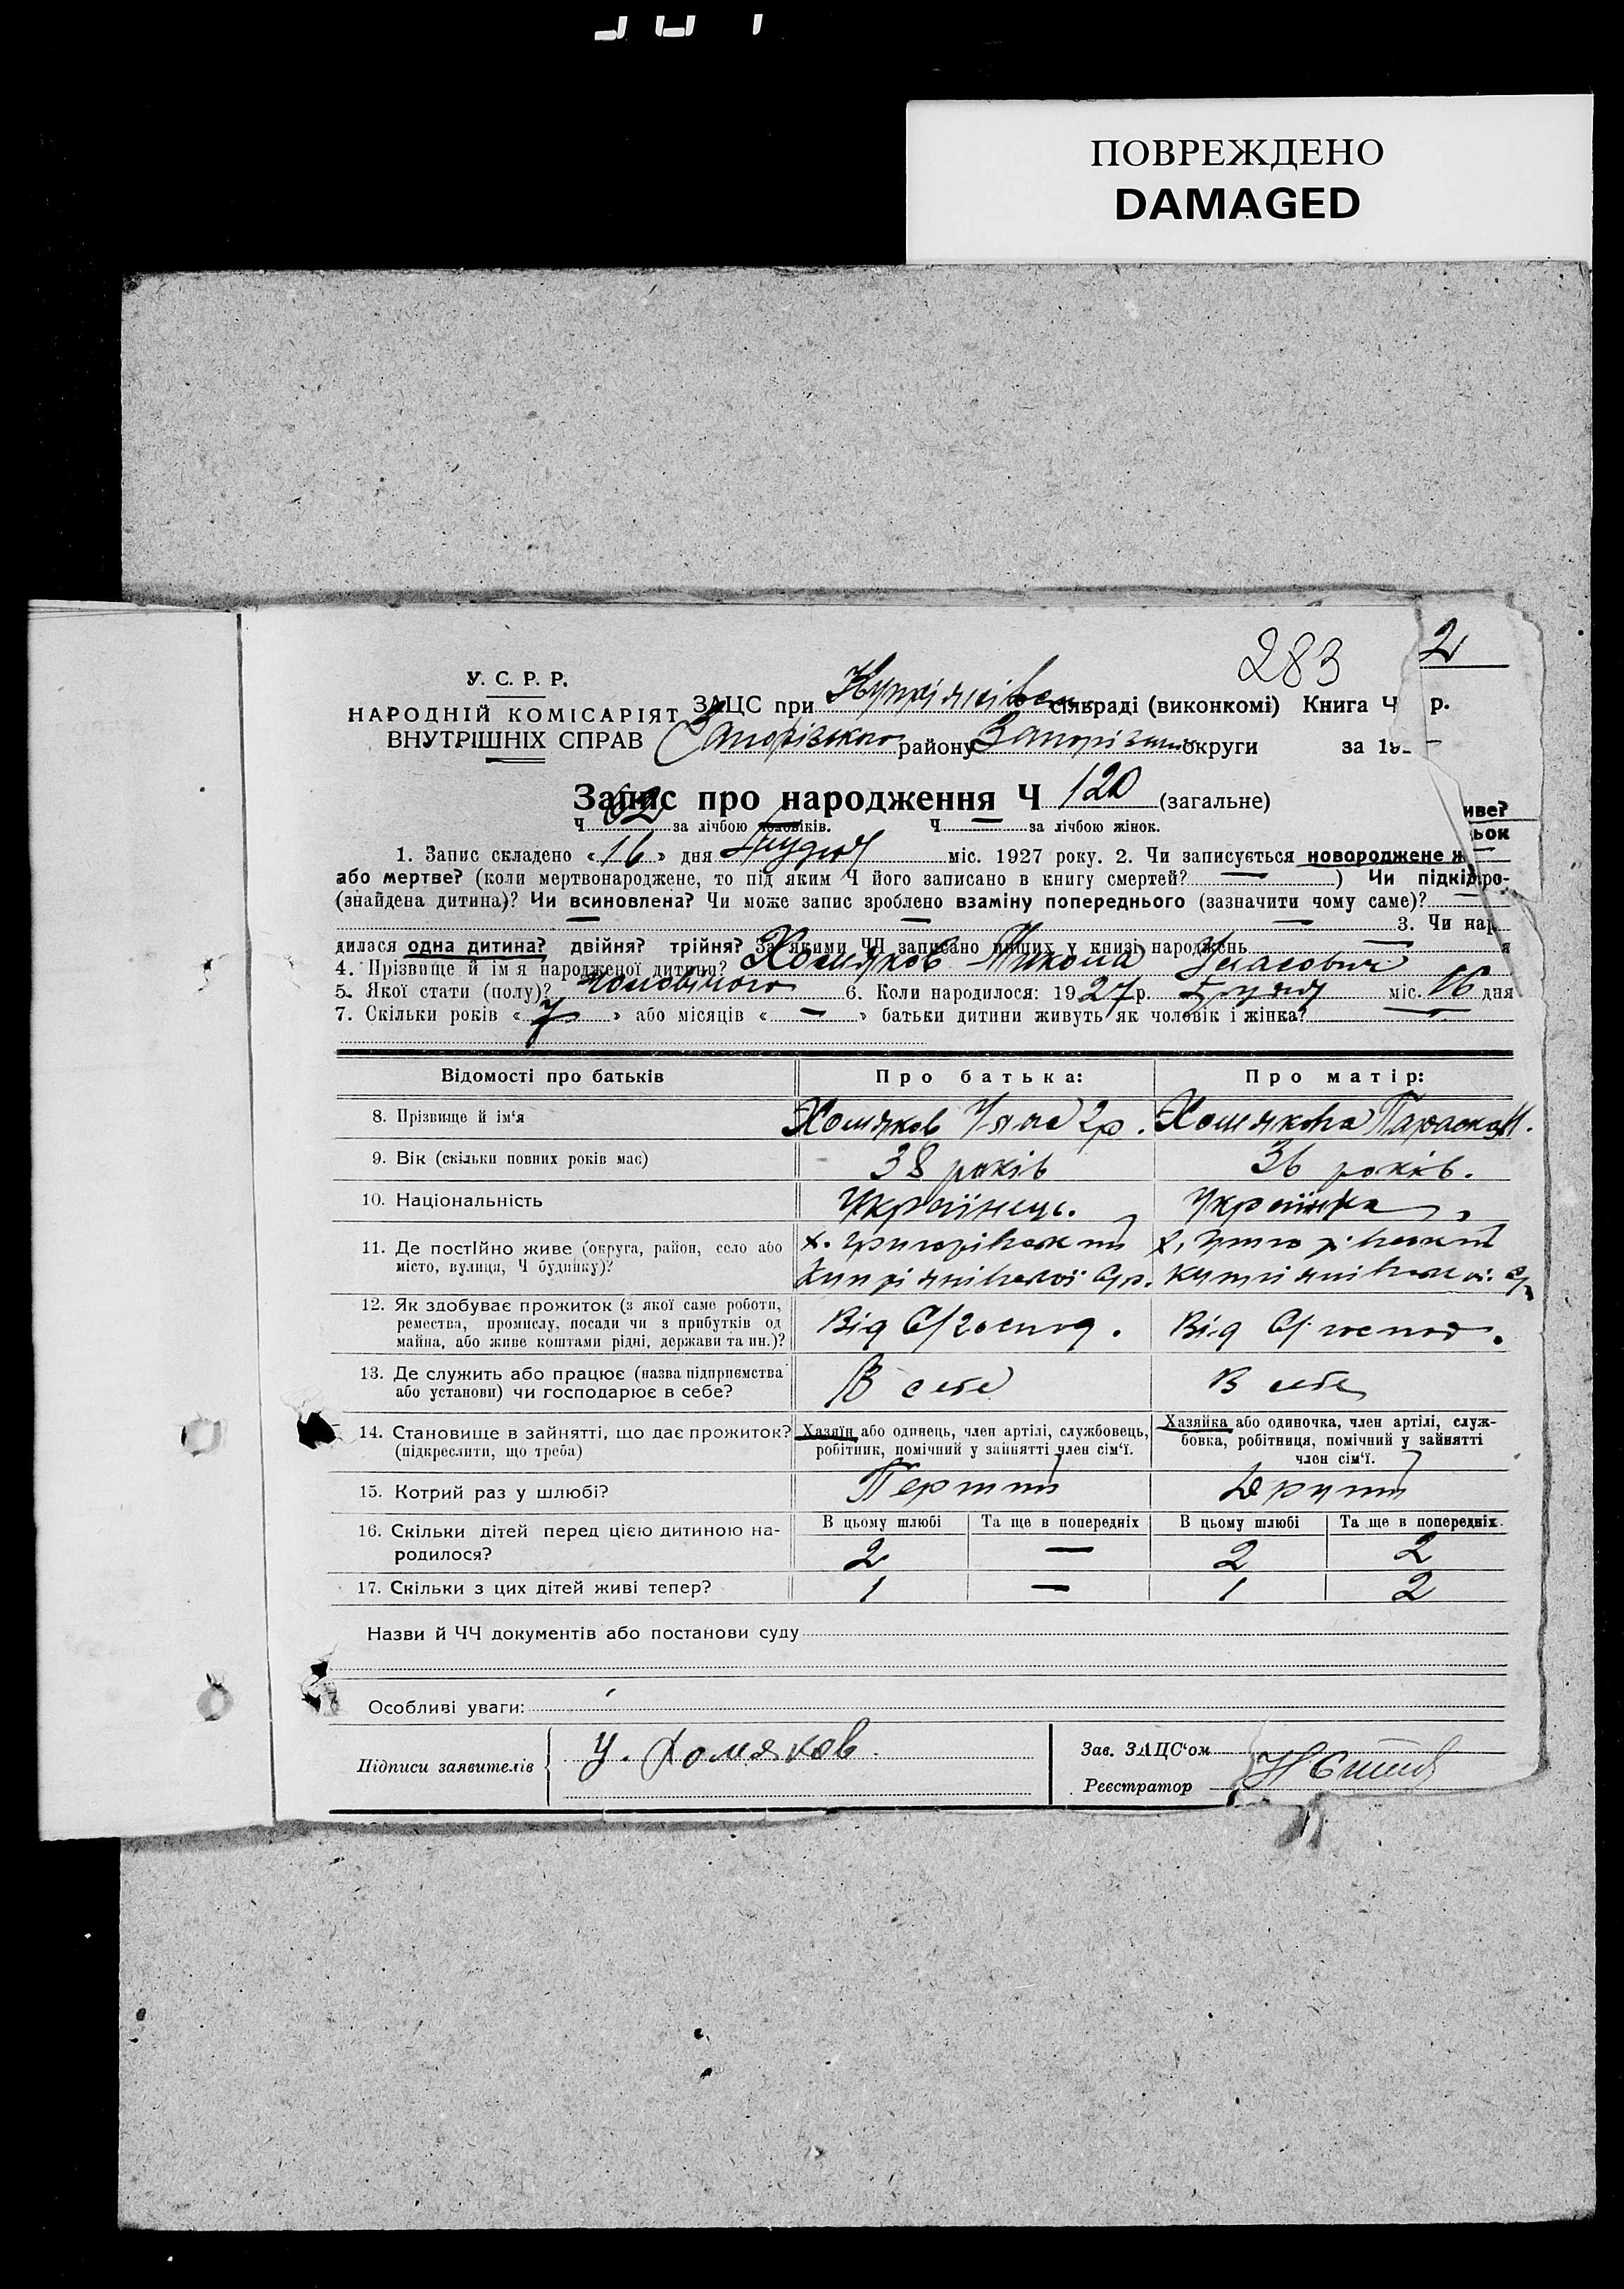 ПОВРЕЖДЕНО
DAMAGED
283
2
У. С. Р. Р.
НАРОДНІЙ КОМІСАРІЯТ
ВНУТРІШНІХ СПРАВ
ЗАЦС при сільраді (виконкомі) Книга Ч р.
Запорізького району округи за 19
Запис про народження Ч 120 (загальне)
Ч 62 за лічбою чоловіків. Ч — за лічбою жінок.
иве?
ьок
1. Запис складено «16» дня міс. 1927 року. 2. Чи записується новороджене ж
або мертве? (коли мертвонароджене, то під яким Ч його записано в книгу смертей? — ) Чи підкид ро-
(знайдена дитина)? Чи всиновлена? Чи може запис зроблено взаміну попереднього (зазначити чому саме)? —
3. Чи нар
дилася одна дитина? двійня? трійня? За якими ЧЧ записано инших у книзі народжень — я
4. Прізвище й ім'я народженої дитини? Хомяков Микола Уласович
5. Якої стати (полу)? чоловічого 6. Коли народилося: 1927 р. міс. 16 дня
7. Скільки років « 7 » або місяців « — » батьки дитини живуть як чоловік і жінка? —
Відомості про батьків Про батька: Про матір:
8. Прізвище й ім'я Хомяков Улас Гр. Хомякова Параска
9. Вік (скільки повних років має) 38 років 36 років.
10. Національність Українець. Українка
11. Де постійно живе (округа, район, село або
місто, вулиця, Ч будинку)?
х. Григорівський х. Григорівський
Купріянівської с/р. Купріянівської с/р
12. Як здобуває прожиток (з якої саме роботи,
ремества, промислу, посади чи з прибутків од
майна, або живе коштами рідні, держави та ин.)?
Від С/господ. Від С/господ.
13. Де служить або працює (назва підприємства
або установи) чи господарює в себе?
В себе В себе
14. Становище в зайнятті, що дає прожиток?
(підкреслити, що треба)
Хазяїн або одинець, член артілі, службовець,
робітник, помічний у зайнятті член сім'ї.
Хазяйка або одиночка, член артілі, служ-
бовка, робітниця, помічний у зайнятті
член сім'ї.
15. Котрий раз у шлюбі? Перший Другий
16. Скільки дітей перед цією дитиною на-
родилося?
В цьому шлюбі Та ще в попередніх В цьому шлюбі Та ще в попередніх.
2 — 2 2
17. Скільки з цих дітей живі тепер? 1 — 1 2
Назви й ЧЧ документів або постанови суду
Особливі уваги:
Підписи заявителів У. Хомяков.
Зав. ЗАЦС'ом
Реєстратор